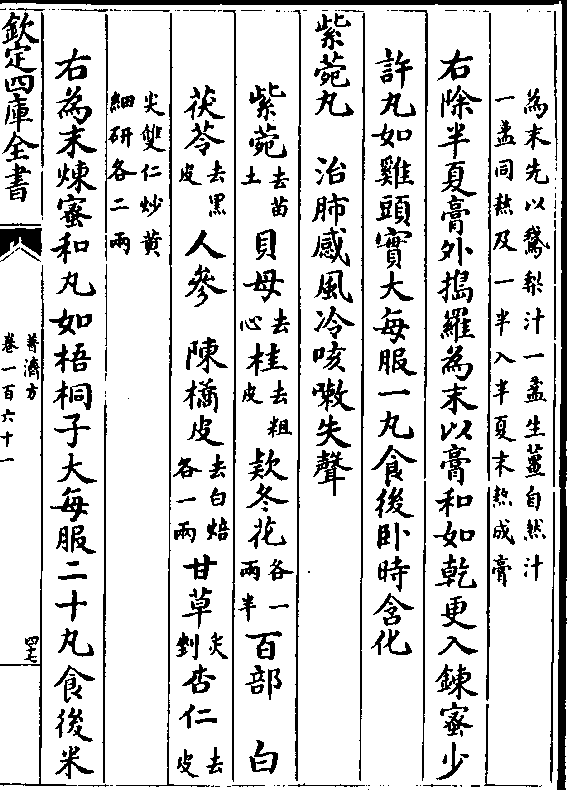 為末先以鵝梨汁一盞生薑自然汁
一盞同熬及一半入半夏末熬成膏
右除半夏膏外搗羅為末以膏和如乾更入鍊蜜少
許丸如雞頭實大每服一丸食後卧時含化
紫菀丸　治肺感風冷咳嗽失聲
紫菀去苗土貝母去心桂去粗皮款冬花各一兩半百部　白
茯苓去黑皮人參　陳橘皮去白焙各一兩甘草炙剉杏仁去皮
尖雙仁炒黄細研各二兩
右為末煉蜜和丸如梧桐子大每服二十丸食後米
欽定四庫全書
普濟方
卷一百六十一
四十七